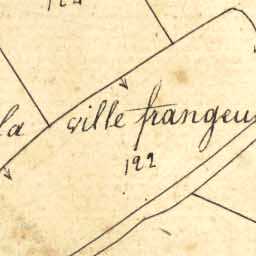 la ville frangeu
122